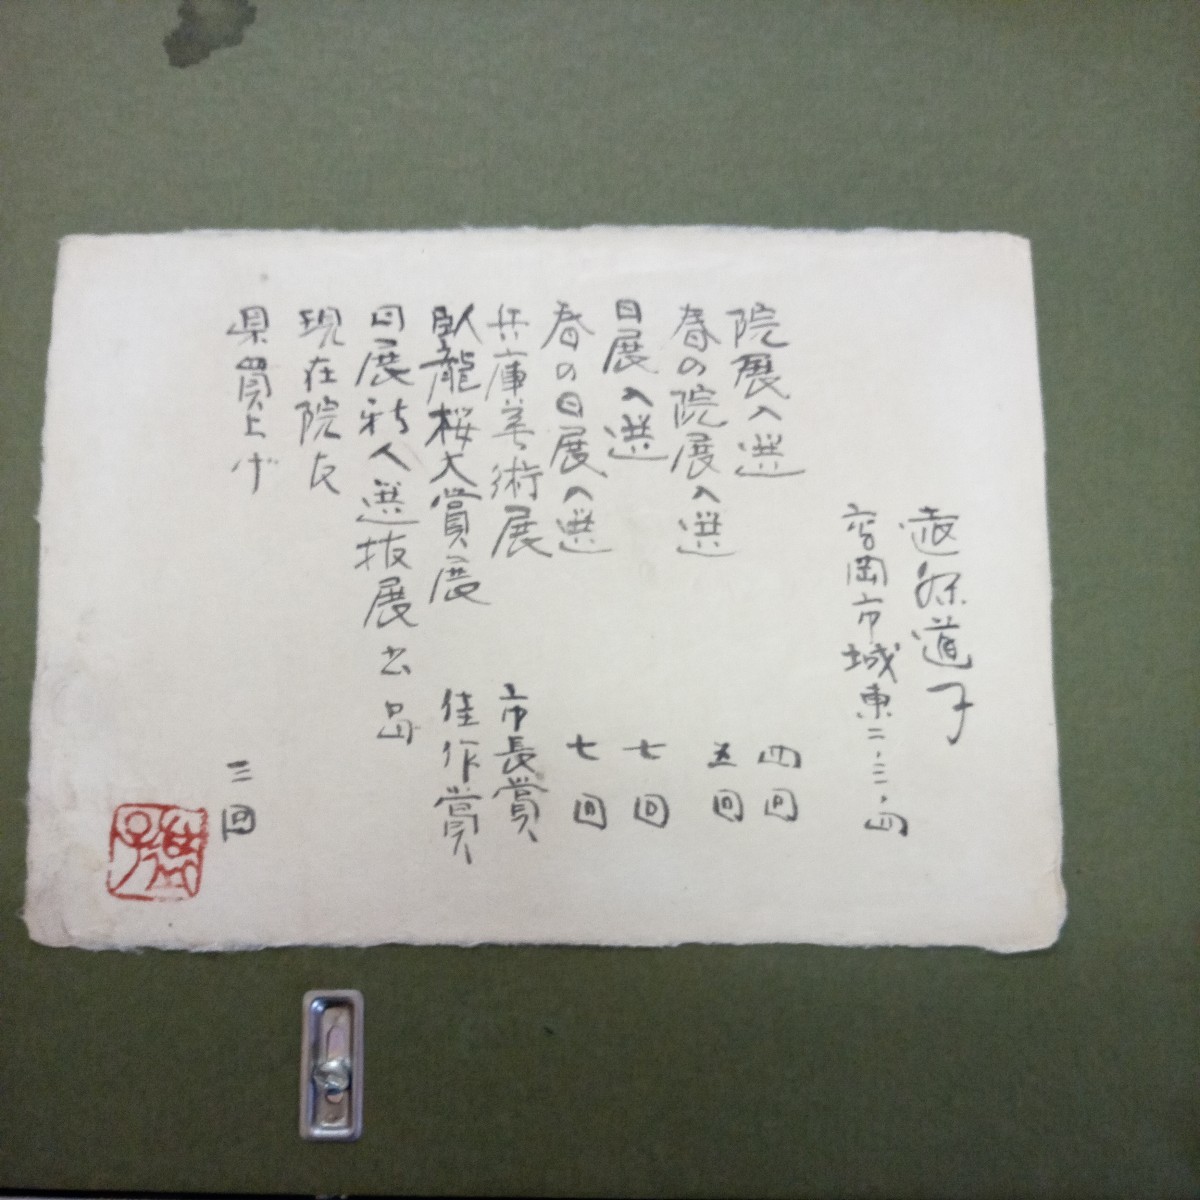 道子
高岡市城東二・三・四
院展入選 四回
春の院展入選 五回
日展入選 七回
春の日展入選 七回
兵庫美術展 市長賞
臥龍桜大賞展 佳作賞
日展新人選抜展出品
現在院友
県買上げ 三回